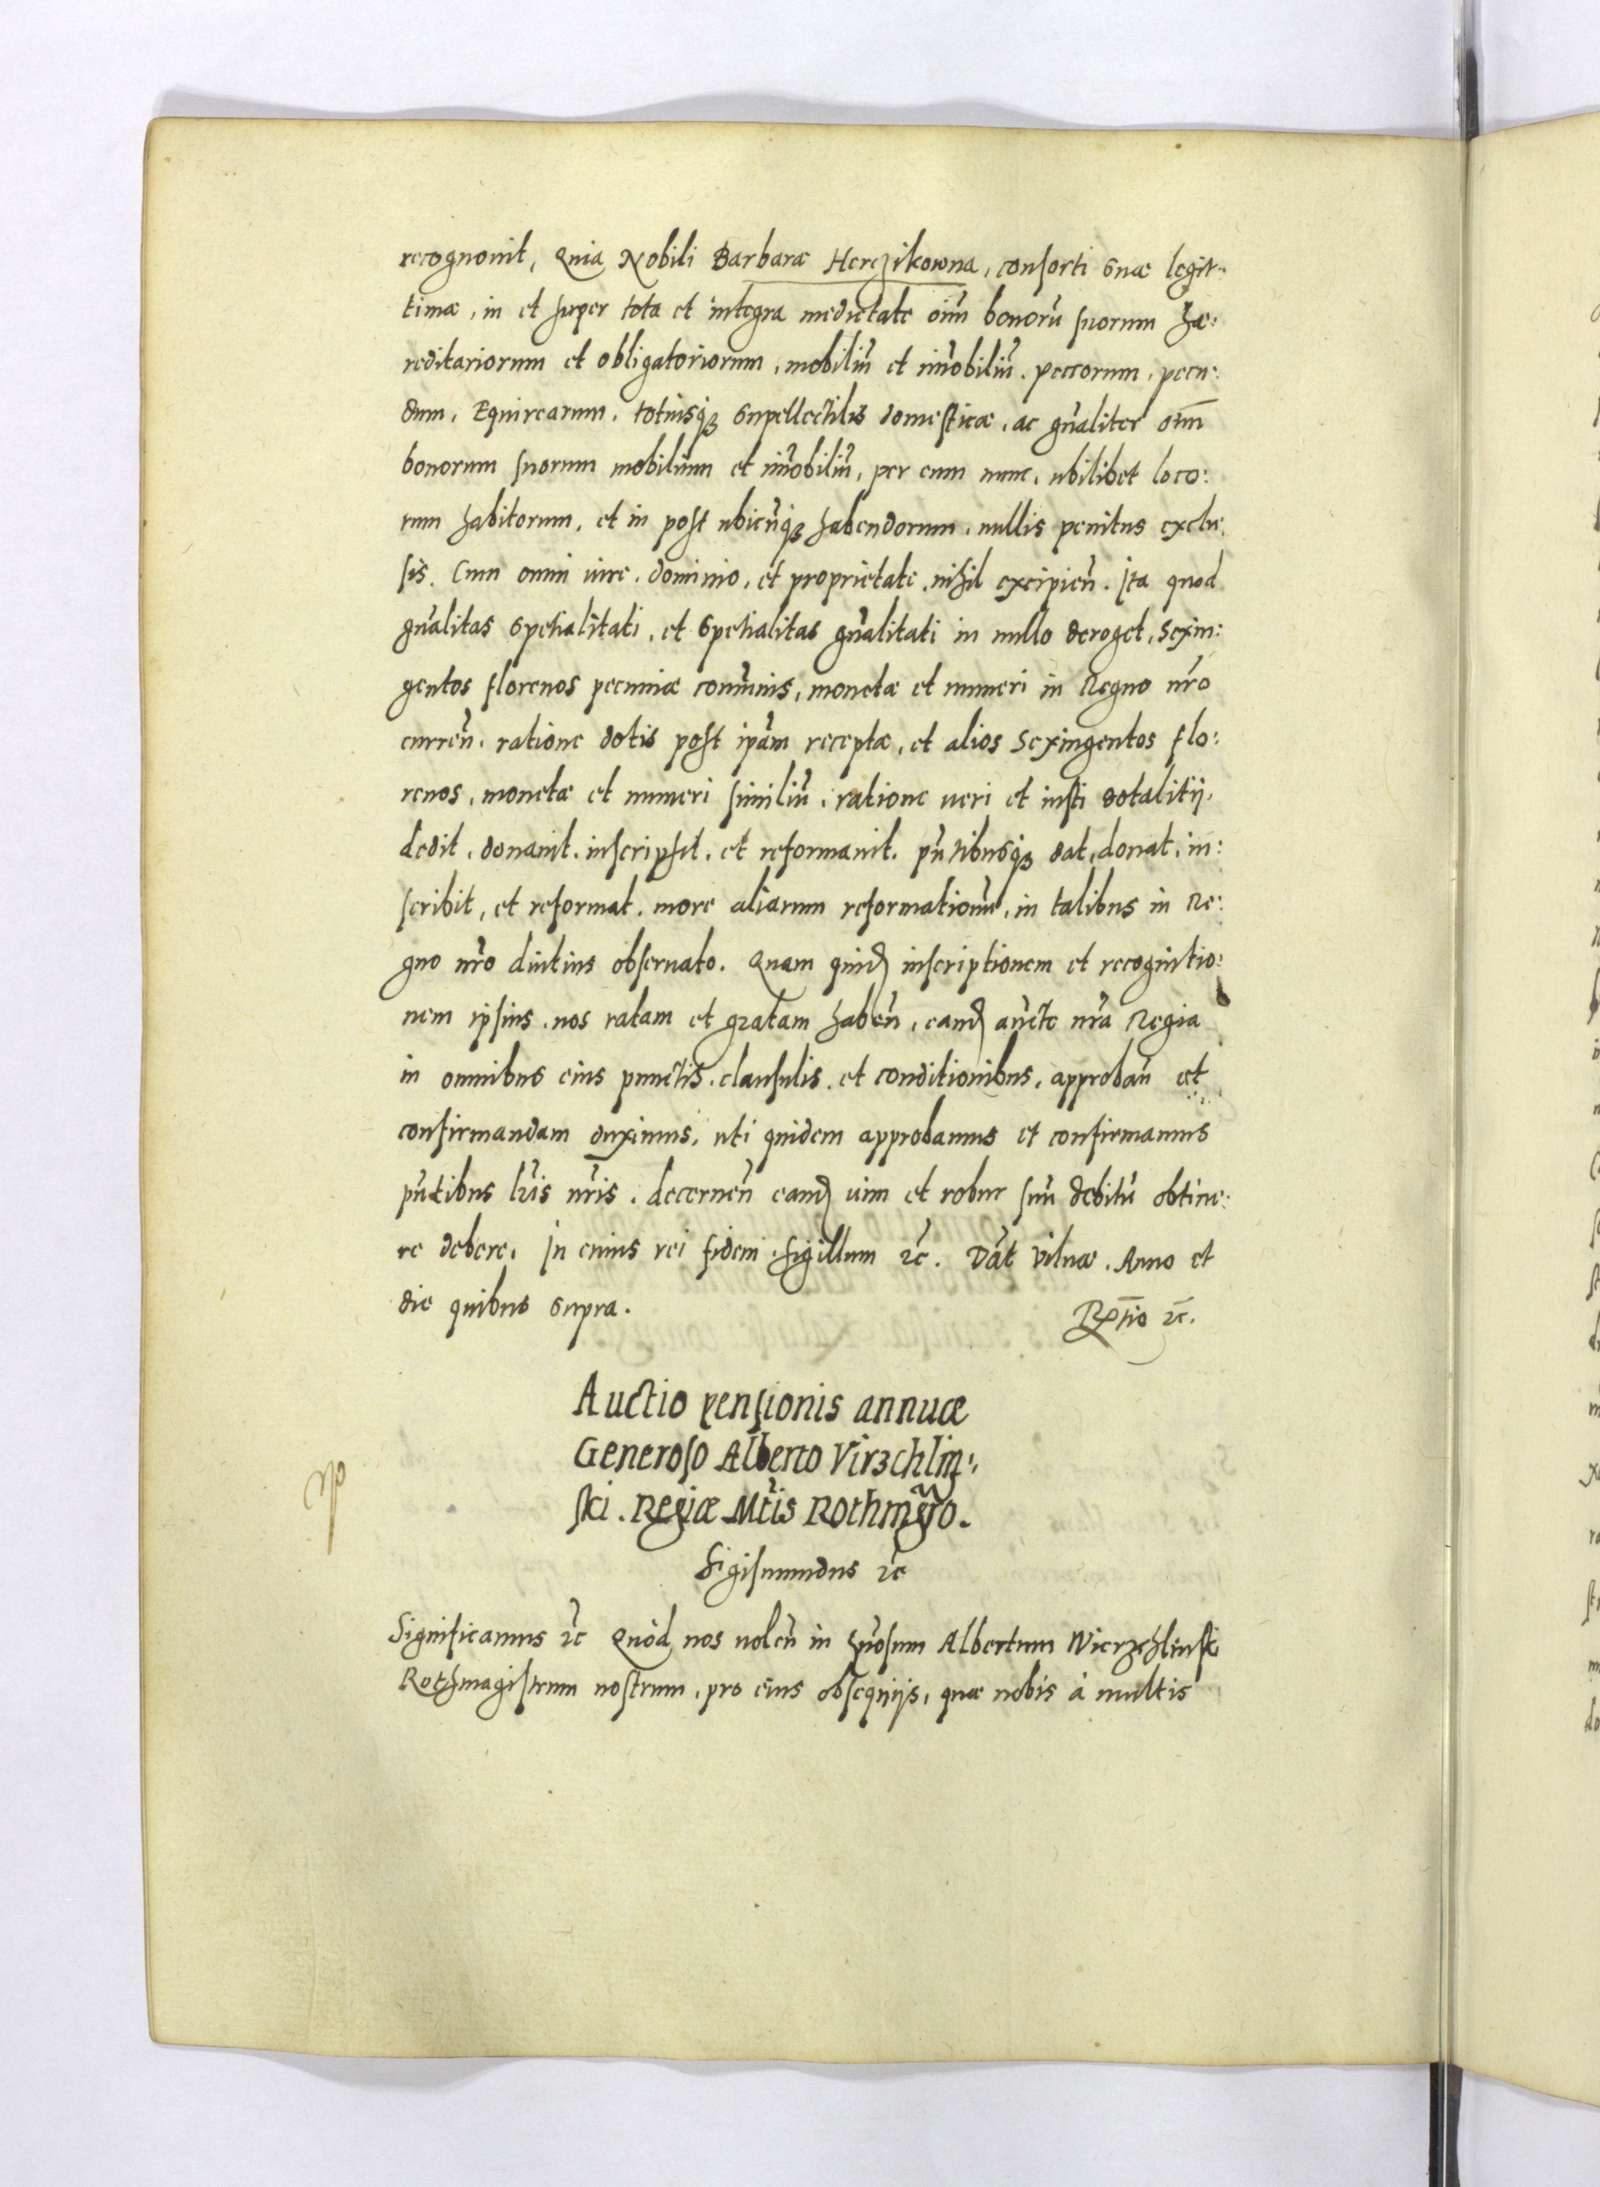 recognouit, Quia Nobili Barbaræ Herczikowna, consorti suæ legit-
timæ, in et super tota et integra medietate oiũ bonorũ suorum hæ:
reditariorum et obligatoriorum, mobiliũ et im̃obiliũ. peccorum, pecu:
dum, Equirearum, totiusq3 supellectilis domesticæ, ac gñaliter oĩm
bonorum suorum mobilium et im̃obiliũ, per eum nunc, ubilibet loco:
rum habitorum, et in post ubicũq3 habendorum, nullis penitus exclu:
sis. Cum omni iure, dominio, et proprietate, nihil excipieñ. Ita quod
gñalitas spetialitati, et spetialitas gñalitati in nullo deroget, Sexin:
gentos florenos pecuniæ com̃unis, monetæ et numeri in Regno nr̃o
curreñ, ratione dotis post ip̃am receptæ, et alios Sexingentos flo:
renos, monetæ et numeri similiũ, ratione ueri et iusti dotalitij,
dedit, donauit, inscripsit, et reformauit, pñtibusq3 dat, donat, in:
scribit, et reformat, more aliarum reformationũ, in talibus in Re:
gno nr̃o diutius obseruato. Quam quid̃ inscriptionem et recognitio:
nem ipsius, nos ratam et gratam habeñ, eand̃ auc̃te nr̃a Regia
in omnibus eius punctis, clausulis, et conditionibus, approbañ et
confirmandam duximus, uti quidem approbamus et confirmamus
pñtibus lr̃is nr̃is. decerneñ eand̃ uim et robur suũ debitũ obtine:
re debere. In cuius rei fidem sigillum ꝛc̃. Dat̃ Vilnæ. Anno et
die quibus supra.
Rp̃tio ꝛc̃.
Auctio pensionis annuæ
Generoso Alberto Virzchlin:
ski. Regiæ Mt̃is Rothmg̃ro.
Sigismundus ꝛc̃
Significamus ꝛc̃ Quòd nos uoleñ in gñosum Albertum Wierzchlinski
Rothmagistrum nostrum, pro eius obsequijs, quæ nobis à multis